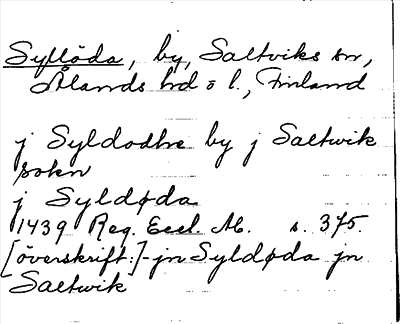 Syllöda, by, Saltviks sn,
Ålands hd o l., Finland
j Syldodhe by j Saltwik
sokn
j Syldøda
1439 Reg. Eccl. Ab. s. 375.
[överskrift:]-jn Syldøda jn
Saltwik